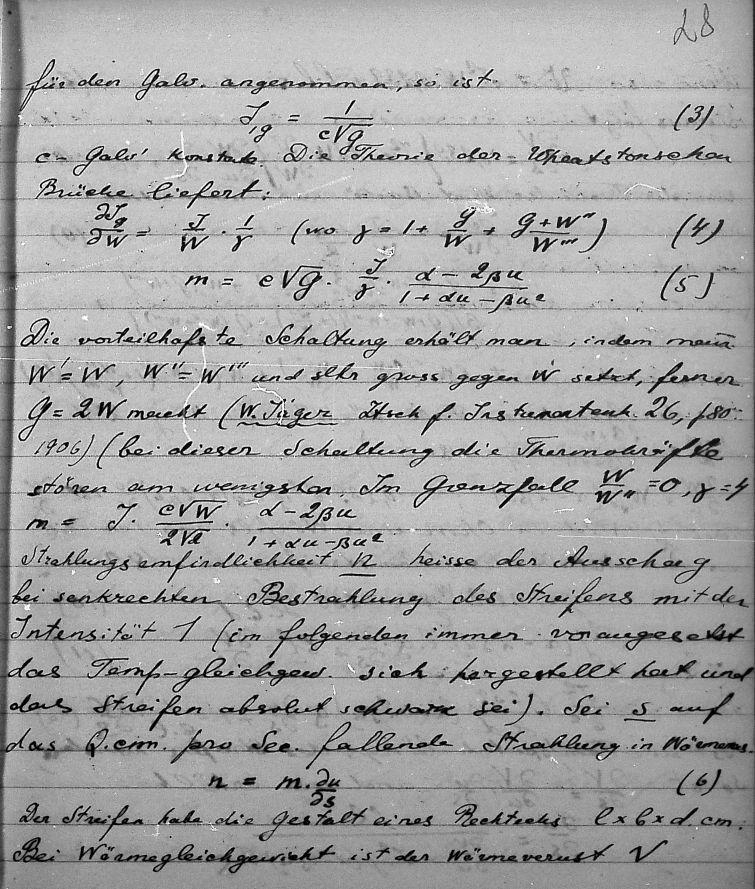 28
für den Galv. angenommen, so ist
J_g = 1/(c√g) (3)
c - Galv' Konstante. Die Theorie der Wheatstonschen
Brücke liefert:
∂J_g/∂W = J/W · 1/γ (wo γ = 1 + g/W + (g+W'')/W''') (4)
m = c√g · J/γ · (α - 2βu)/(1 + αu - βu²) (5)
Die vorteilhafste Schaltung erhält man, indem man
W' = W, W'' = W''' und sehr gross gegen W setzt, ferner
g = 2W macht (W. Jäger Ztsch f. Instrumentenk. 26, p 80
1906) (bei dieser Schaltung die Thermokräfte
stören am wenigsten. Im Grenzfall W/W'' = 0, γ = 4
m = J · c√W/2√2 · (α - 2βu)/(1 + αu - βu²)
Strahlungsemfindlichkeit n heisse der Ausschag
bei senkrechten Bestrahlung des Streifens mit der
Intensität 1 (im folgenden immer vorausgesetzt
das Temp-gleichgew. sich hergestellt hat und
das Streifen absolut schwarz sei). Sei s auf
das Q.cm. pro Sec. fallende Strahlung in Wärmeeus.
n = m · ∂u/∂s (6)
Der Streifen habe die Gestalt eines Rechtecks l x b x d cm.
Bei Wärmegleichgewicht ist der Wärmeverust V